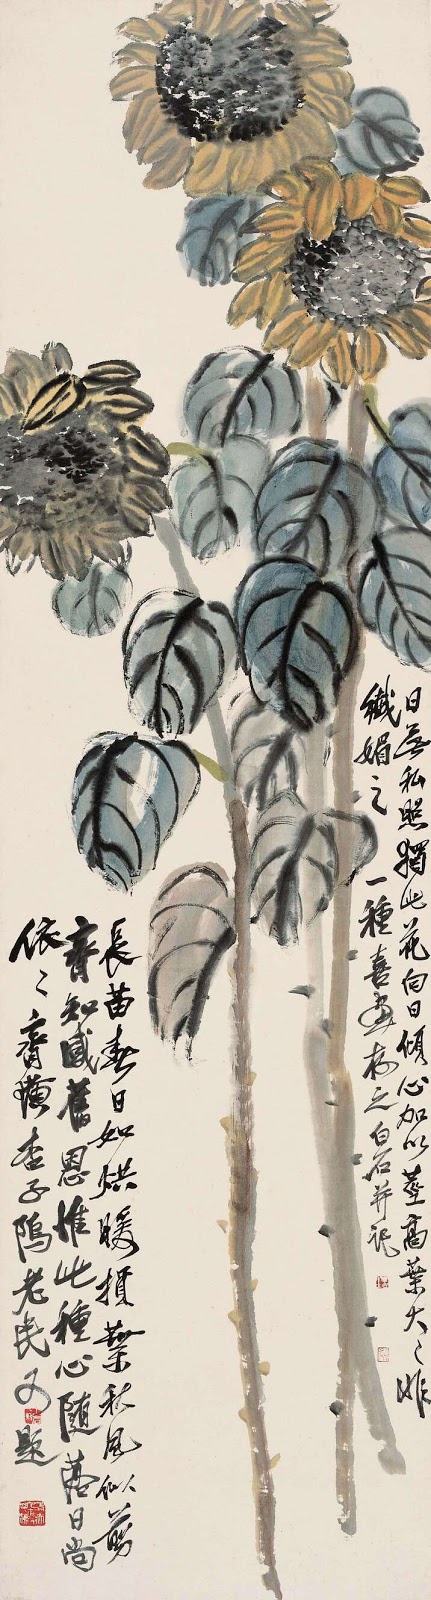 日無私照獨此花向日傾心加以莖高葉大〻非
纖媚之一種喜畫存之白石并記
長苗春日如烘暖損葉秋風似剪
齊知感舊恩惟此種心隨落日尚
依〻齊璜杏子隖老民又題